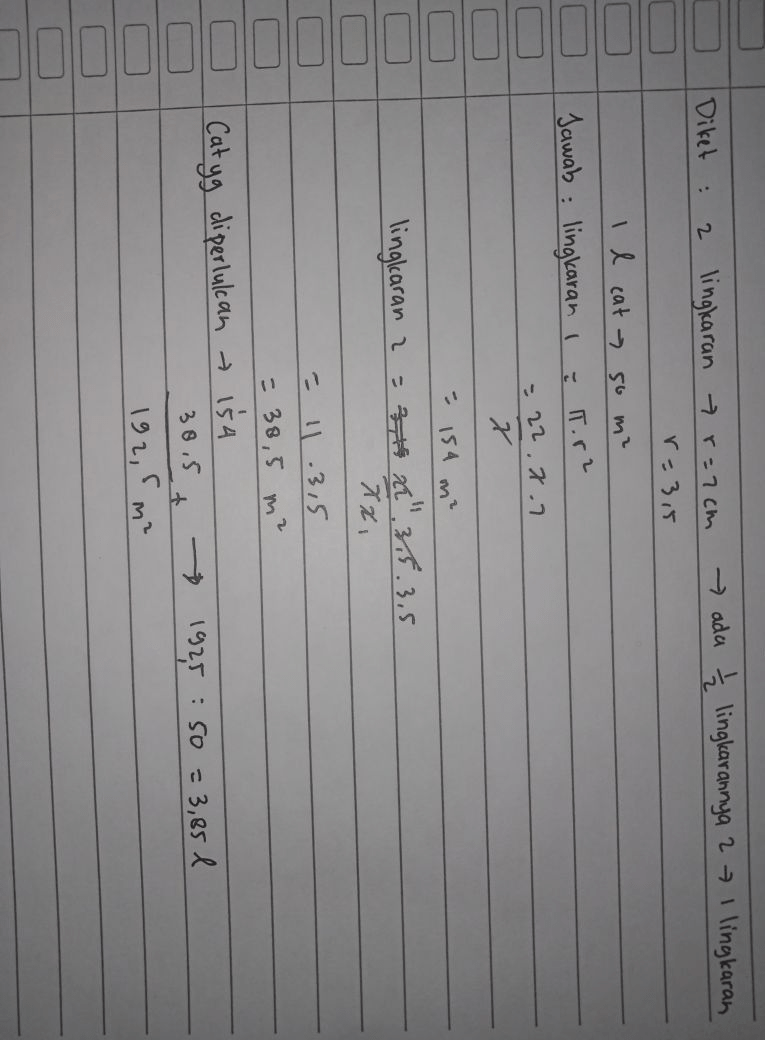 Diket : 2 lingkaran → r = 7 cm → ada 1/2 lingkarannya 2 → 1 lingkaran
r = 3,5
1 l cat → 50 m²
Jawab : lingkaran 1 = π.r²
= 22/7 . 7 . 7
= 154 m²
lingkaran 2 = 22/7 11 . 3,5 . 3,5
1
= 11 . 3,5
= 38,5 m²
Cat yg diperlukan → 154
38,5 + → 192,5 : 50 = 3,85 l
192,5 m²